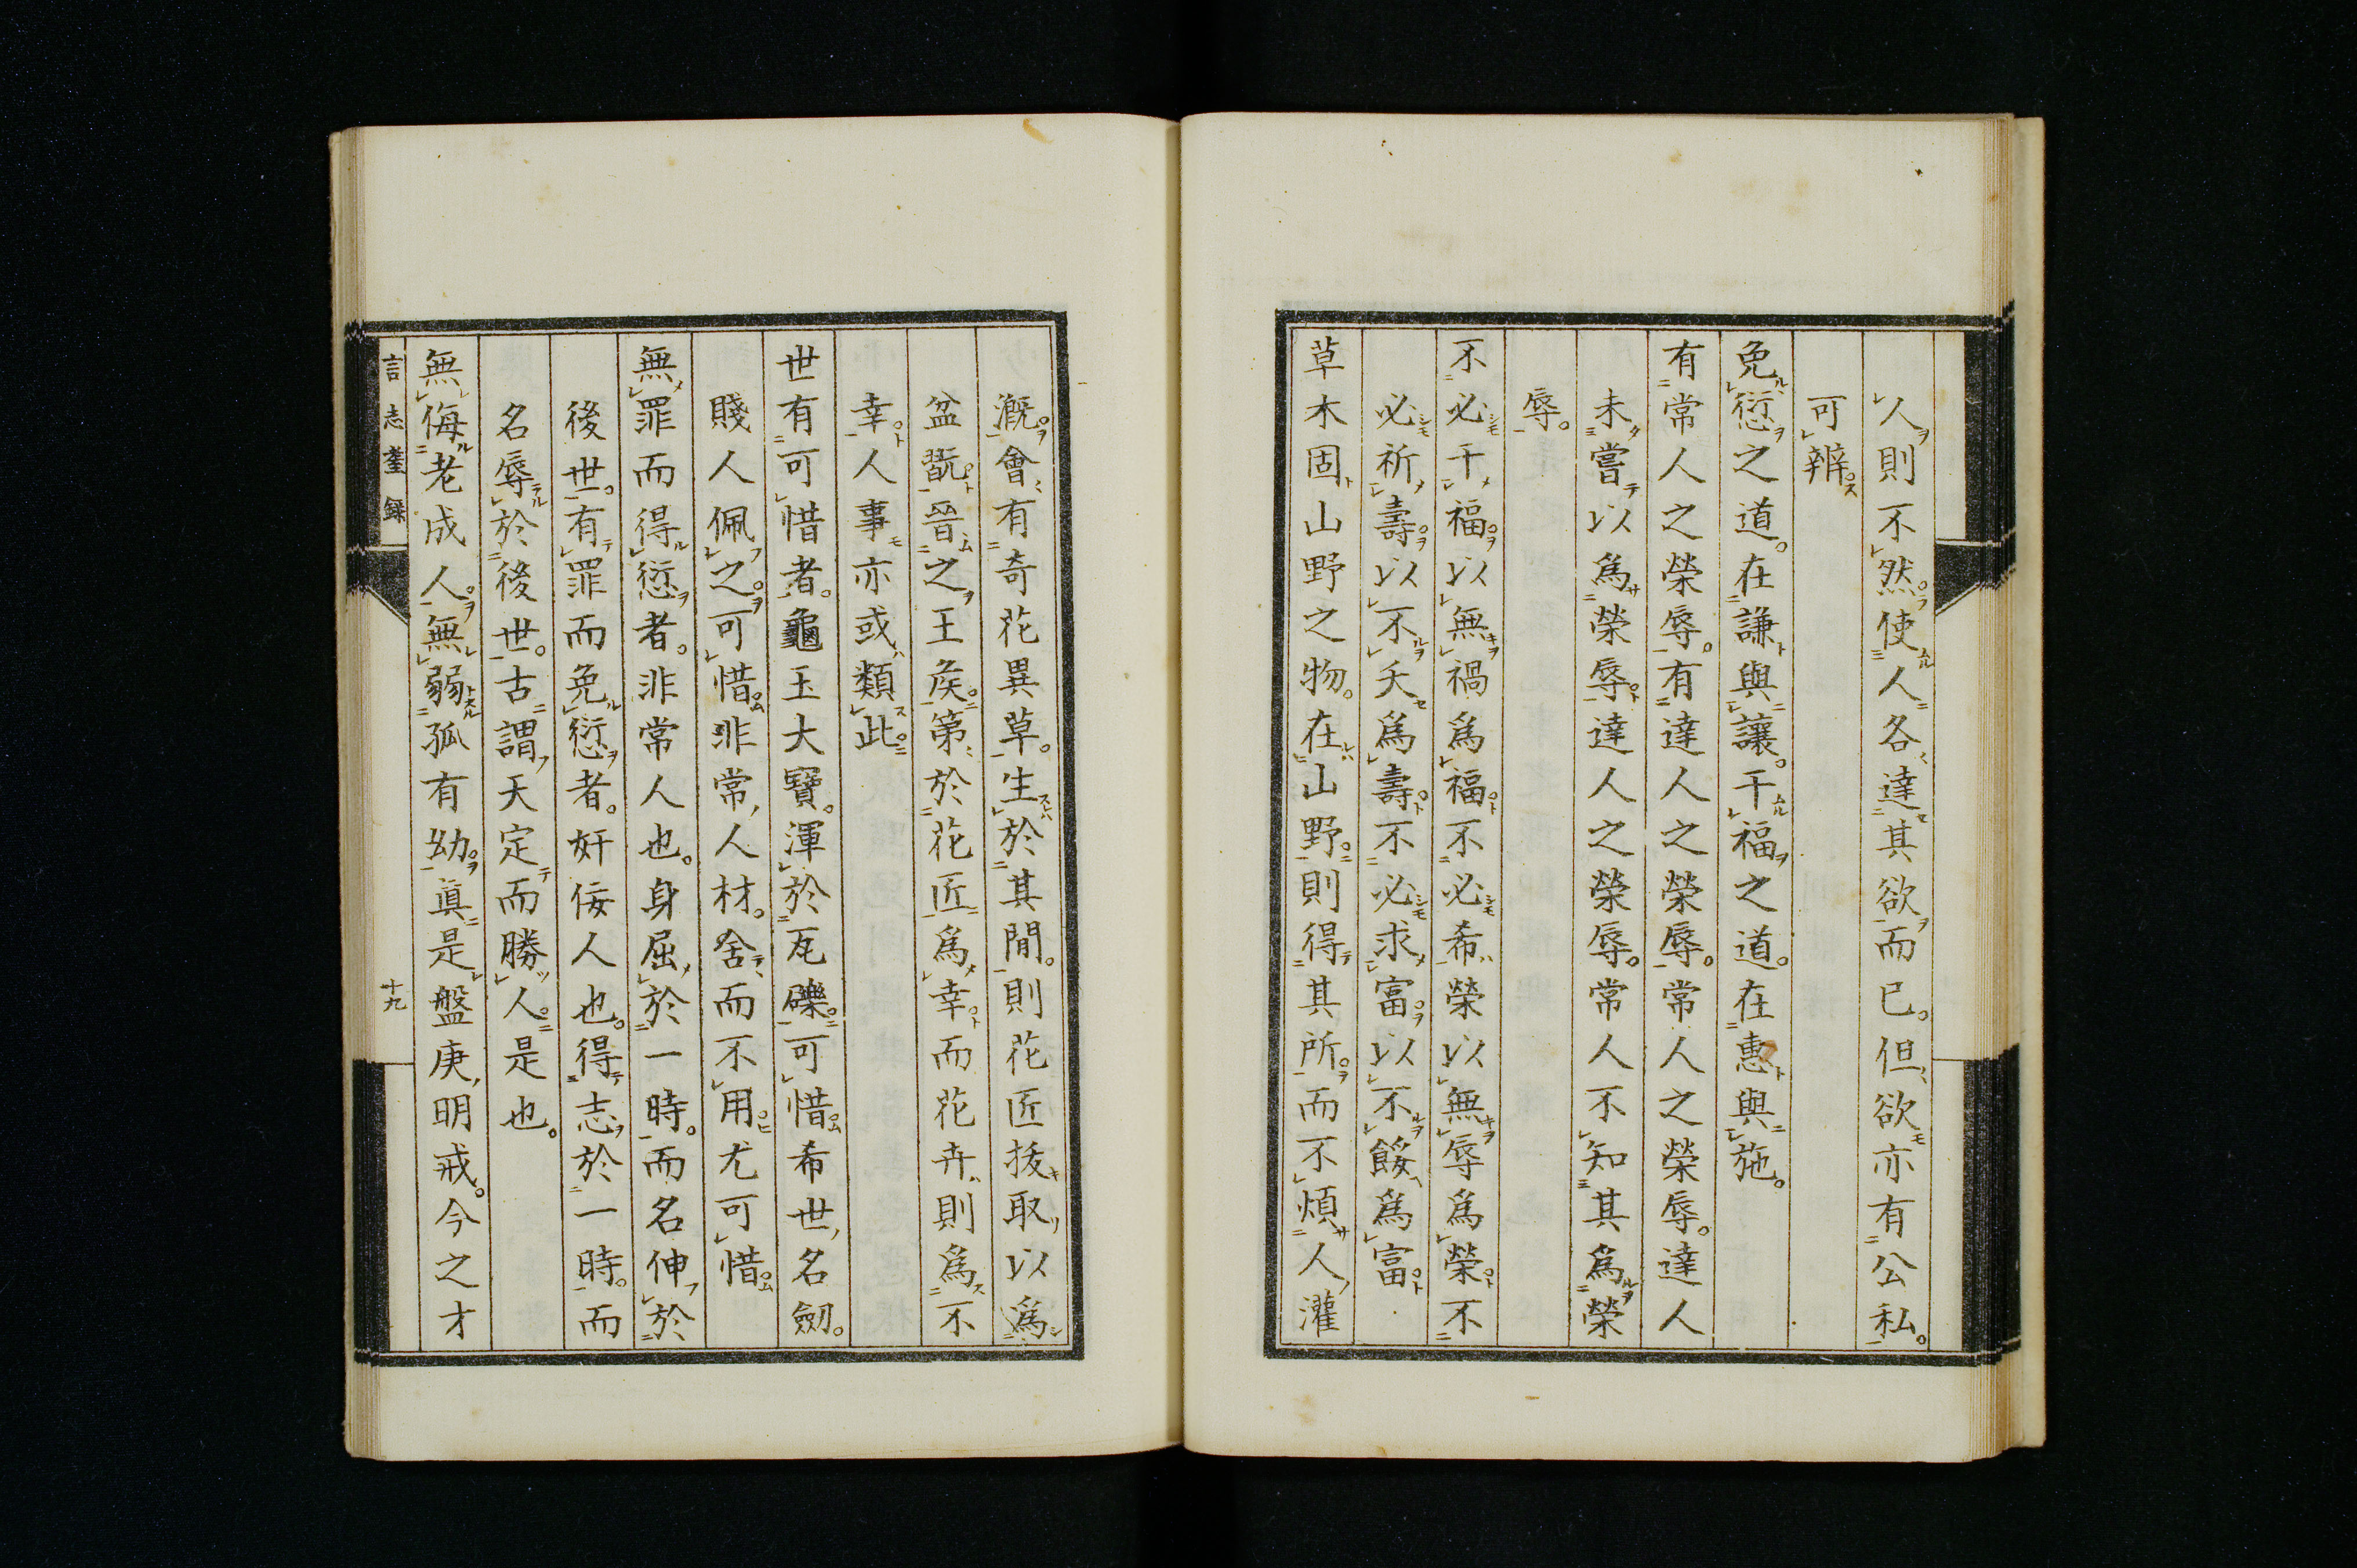 人則不然。使人各達其欲而已。但欲亦有公私。
可辨。
免愆之道。在謙與讓。干福之道。在惠與施。
有常人之榮辱。有達人之榮辱。常人之榮辱。達人
未嘗以爲榮辱。達人之榮辱。常人不知其爲榮
辱。
不必干福。以無禍爲福。不必希榮以無辱爲榮。不
必祈壽。以不夭爲壽。不必求富。以不餒爲富。
草木固山野之物。在山野。則得其所。而不煩人灌
漑。會有奇花異草。生於其閒。則花匠拔取以爲
盆翫。晉之王矦。第於花匠爲幸。而花卉則爲不
幸。人事亦或類此。
世有可惜者。龜玉大寶。渾於瓦礫。可惜。希世名劒。
賤人佩之。可惜。非常人材。舍而不用。尤可惜。
無罪而得愆者。非常人也。身屈於一時。而名伸於
後世。有罪而免愆者。奸佞人也。得志於一時。而
名辱於後世。古謂天定而勝人。是也。
無侮老成人。無弱孤有幼。眞是盤庚明戒。今之才
言志耋錄
十九